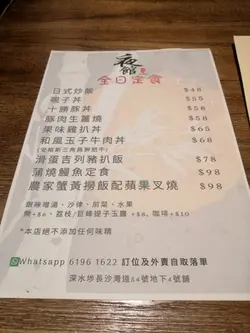 夜館
全日定食
日式炒飯 $48
親子丼 $55
十勝豚丼 $58
豚肉生薑燒 $58
果味雞扒丼 $65
和風玉子牛肉丼 $68
滑蛋吉列豬扒飯 $78
蒲燒鰻魚定食 $98
農家蟹黃撈飯配蘋果叉燒 $98
跟味噌湯、沙律、前菜、水果
*本店絕不添加任何味精
Whatsapp 6196 1622 訂位及外賣自取落單
深水埗長沙灣道84號地下4號舖